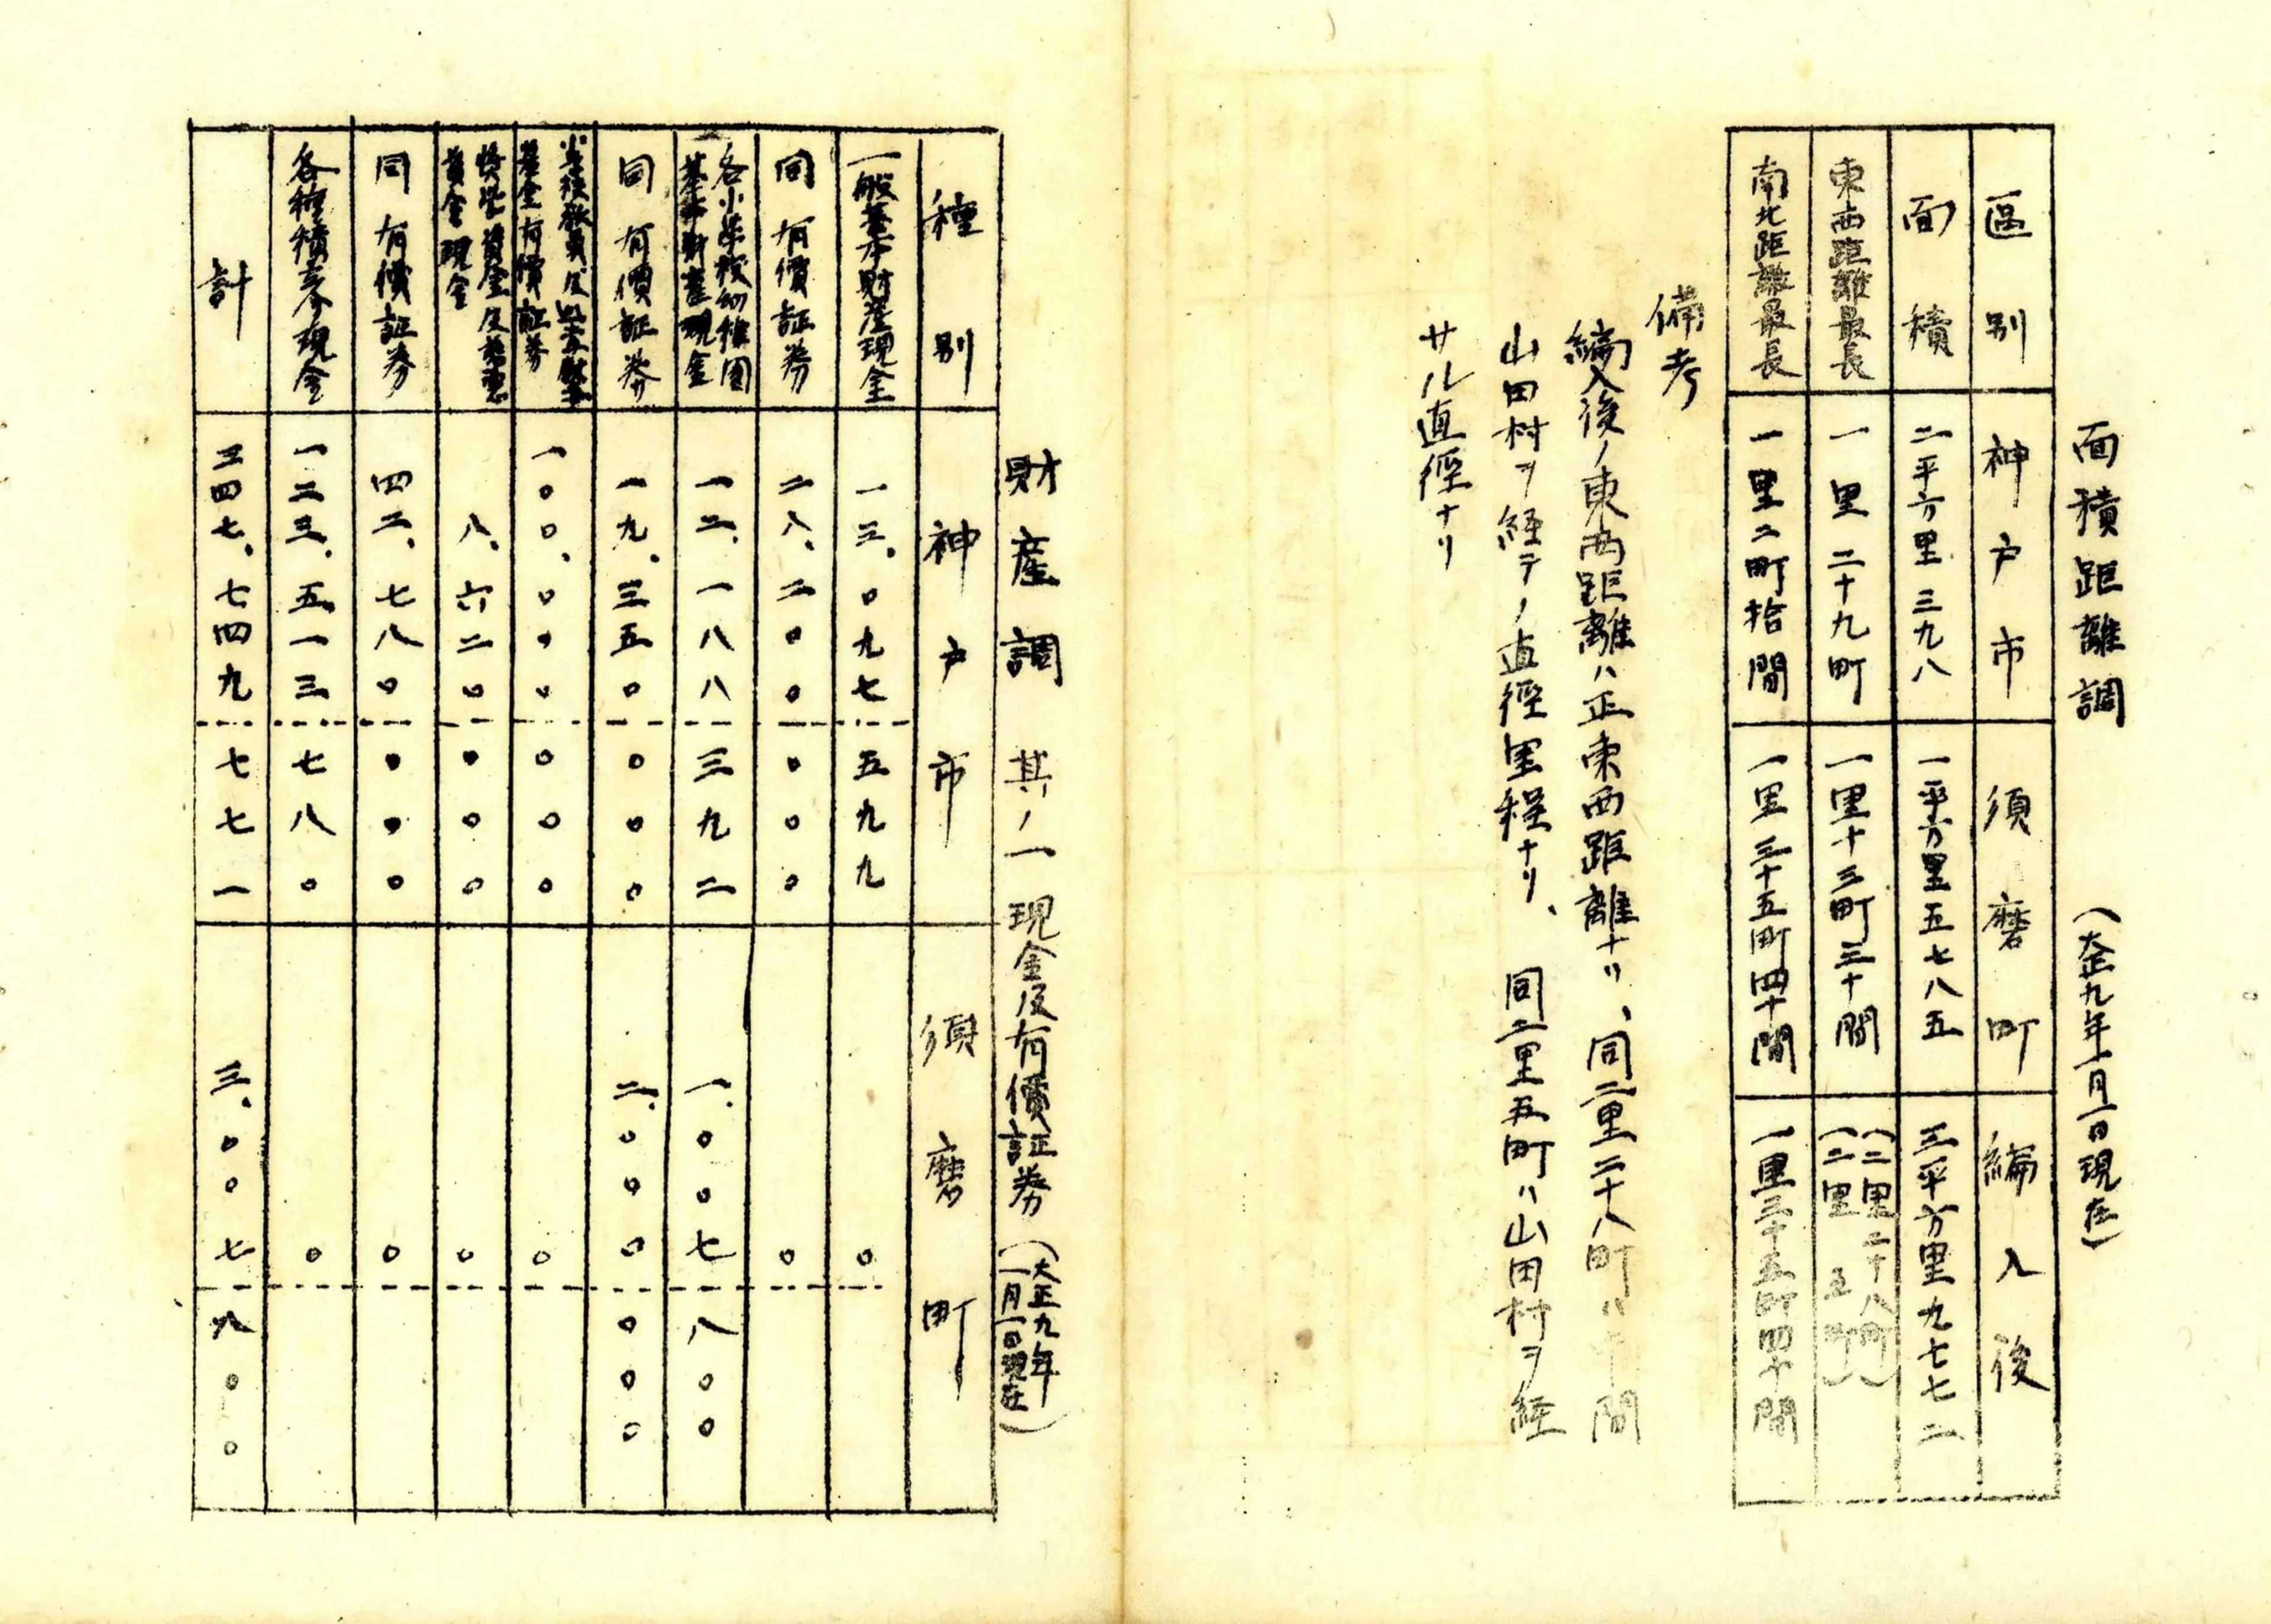 面積距離調 (大正九年一月一日現在)
區別 神戸市 須磨町 編入後
面積 二平方里三九八 一平方里五七八五 三平方里九七七二
東西距離最長 一里二十九町 一里十三町三十間 (二里二十八町) (二里五町)
南北距離最長 一里二町拾間 一里三十五町四十間 一里三十五町四十間
備考
編入後ノ東西距離ハ正東西距離ナリ、同二里二十八町ハ中間
山田村ヲ経テノ直徑里程ナリ、同二里五町ハ山田村ヲ経
サル直徑ナリ
財産調 其ノ一 現金及有價証券 (大正九年一月一日現在)
種別 神戸市 須磨町
一般基本財産現金 一三、〇九七 五九九 〇
同有價証券 二八、二〇〇 〇〇〇 〇
各小学校幼稚園基本財産現金 一二、一八八 三九二 一、〇〇七 八〇〇
同有價証券 一九、三五〇 〇〇〇 二、〇〇〇 〇〇〇
基金有價証券 一〇〇、〇〇〇 〇〇〇 〇
資金現金 八、六二〇 〇〇〇 〇
同有價証券 四二、七八〇 〇〇〇 〇
各種積立金現金 一二三、五一三 七八〇 〇
計 三四七、七四九 七七一 三、〇〇七 八〇〇